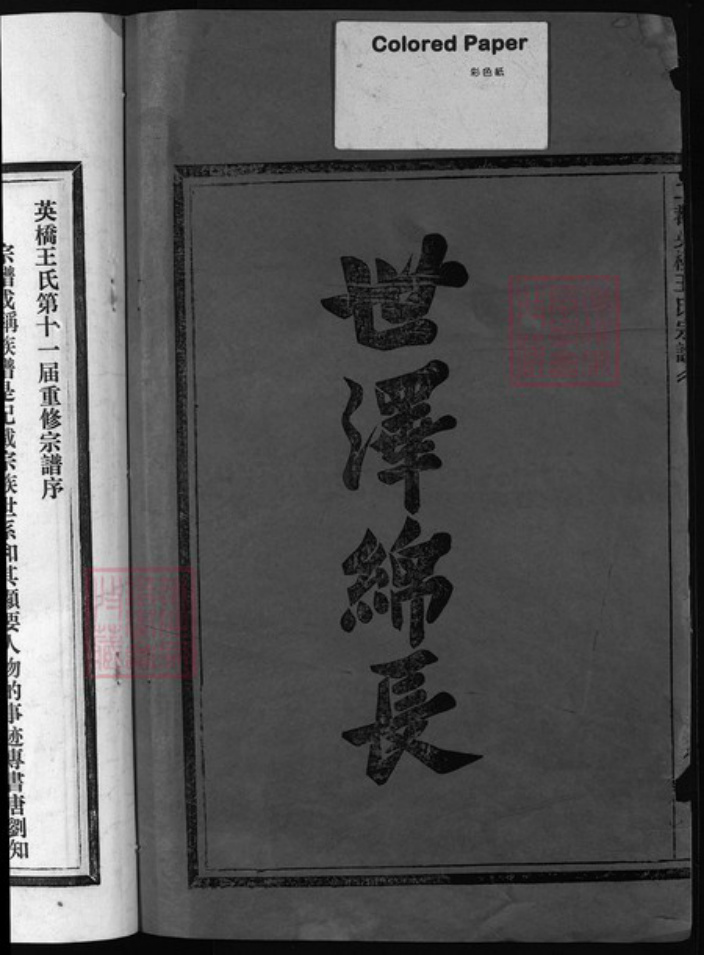 Colored Paper
彩色紙
英橋王氏宗譜
世澤綿長
英橋王氏第十一届重修宗譜序
宗譜或稱族譜是記載宗族世系和其顯要人物的事迹專書唐劉知